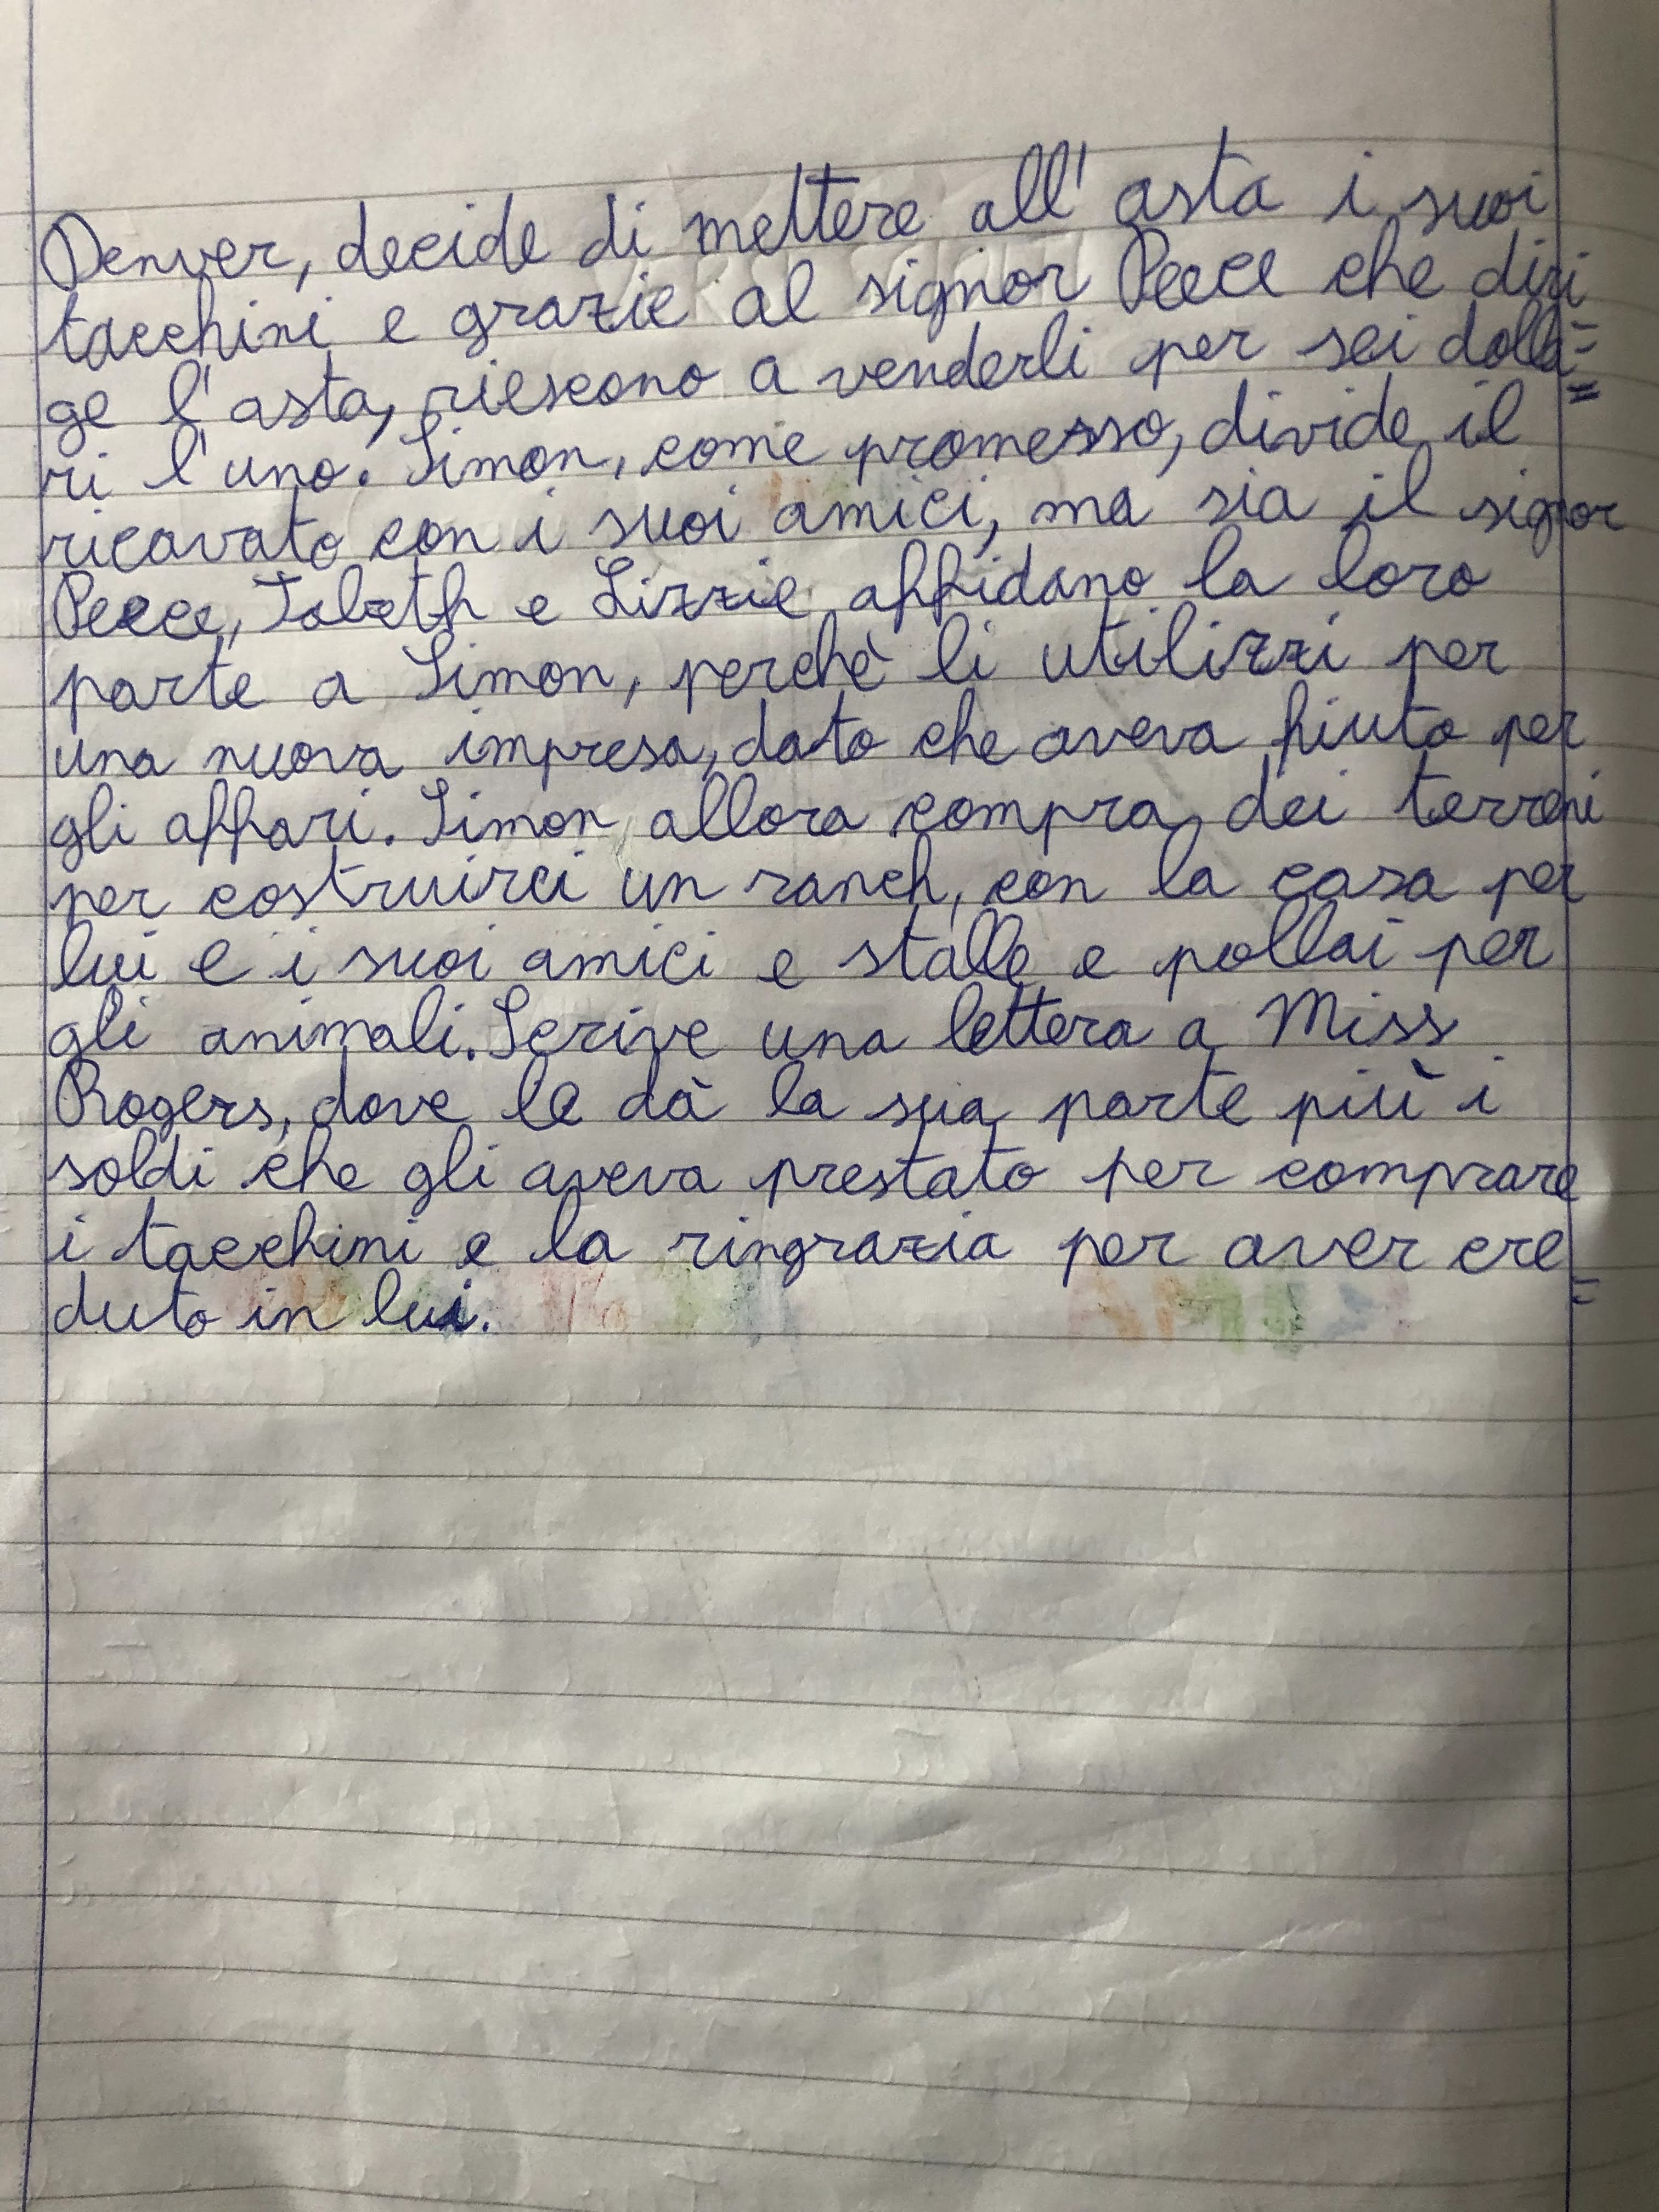 Denver, decide di mettere all'asta i suoi
tacchini e grazie al signor Peece che diri
ge l'asta, riescono a venderli per sei dolla=
ri l'uno. Simon, come promesso, divide il
ricavato con i suoi amici, ma sia il signor
Peece, Jabeth e Lizzie affidano la loro
parte a Simon, perchè li utilizzi per
una nuova impresa, dato che aveva fiuto per
gli affari. Simon allora compra dei terreni
per costruirci un ranch, con la casa per
lui e i suoi amici e stalle e pollai per
gli animali. Scrive una lettera a Miss
Rogers, dove le dà la sua parte più i
soldi che gli aveva prestato per comprare
i tacchini e la ringrazia per aver cre=
duto in lui.